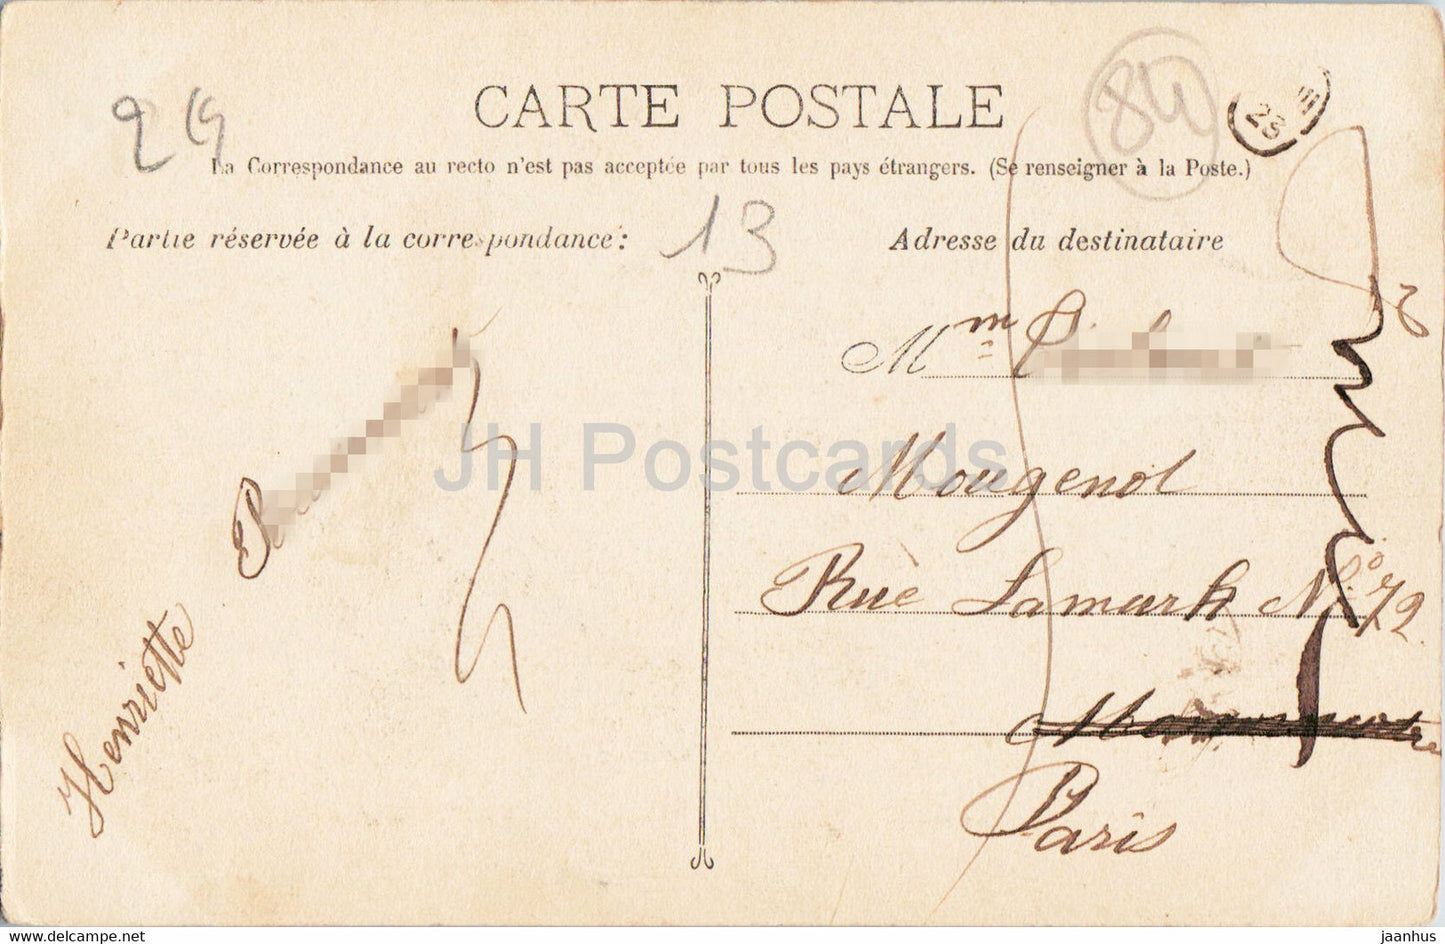 CARTE POSTALE
La Correspondance au recto n'est pas acceptée par tous les pays étrangers. (Se renseigner à la Poste.)
Partie réservée à la correspondance:
Adresse du destinataire
24
84
13
23
Henriette
Mme
Mougenot
Rue Lamark No 72
Paris
JH Postcards
www.delcampe.net
jaanhus